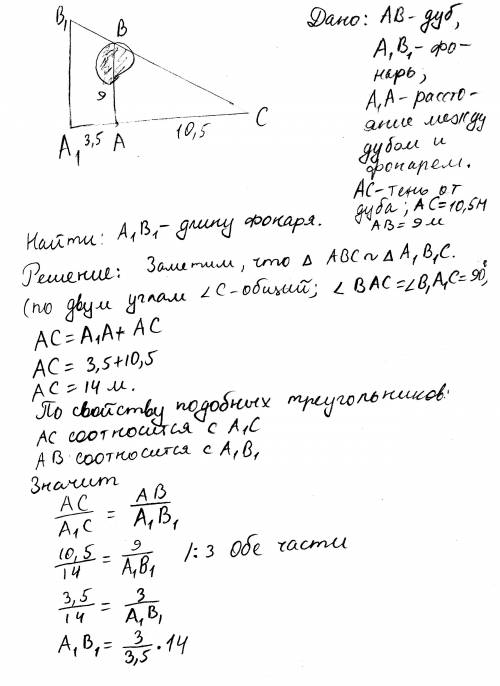 B₁
B
9
A₁ 3,5 A 10,5 C
Дано: AB - дуб,
A₁B₁ - фо-
нарь;
A₁A - рассто-
яние между
дубом и
фонарем.
AC - тень от
дуба; AC = 10,5м
AB = 9 м
Найти: A₁B₁ - длину фонаря.
Решение: Заметим, что △ ABC ~ △ A₁B₁C.
(по двум углам ∠C - общий; ∠BAC = ∠B₁A₁C = 90°,
AC = A₁A + AC
AC = 3,5 + 10,5
AC = 14 м.
По свойству подобных треугольников:
AC соотносится с A₁C
AB соотносится с A₁B₁
Значит
AC/A₁C = AB/A₁B₁
10,5/14 = 9/A₁B₁ /:3 Обе части
3,5/14 = 3/A₁B₁
A₁B₁ = 3/3,5 · 14